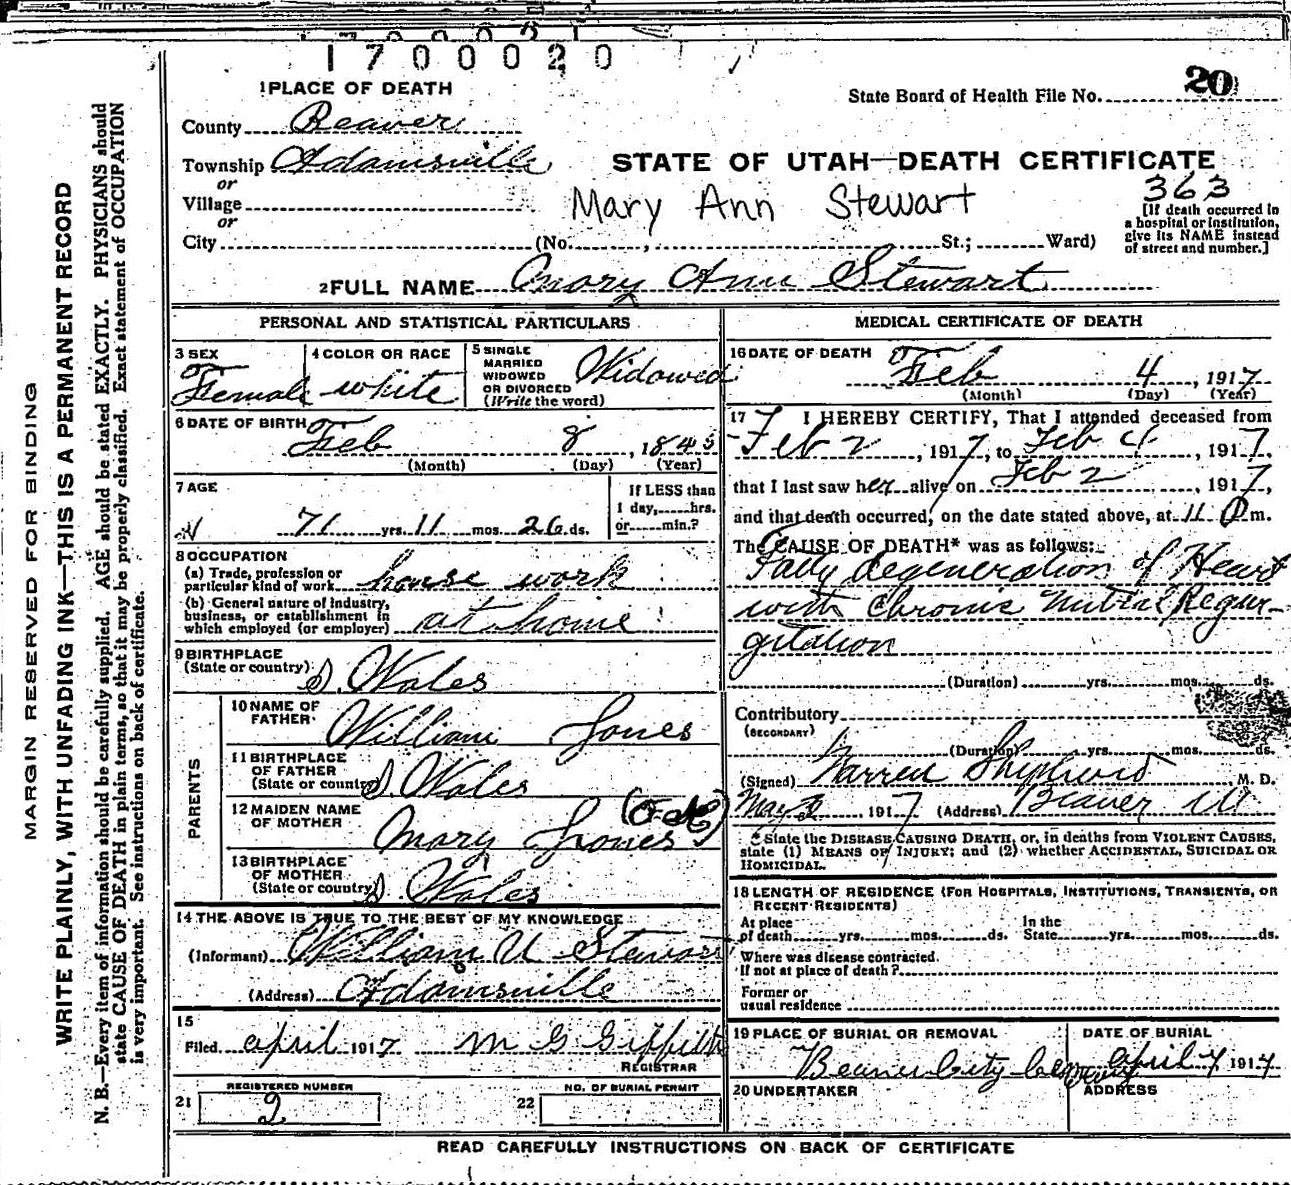 1700020
1 PLACE OF DEATH
State Board of Health File No. 20
County Beaver
Township Adamsville
STATE OF UTAH—DEATH CERTIFICATE
or
Village
Mary Ann Stewart
363
or
[If death occurred in
a hospital or institution,
give its NAME instead
of street and number.]
City (No. , St.; Ward)
2 FULL NAME Mary Ann Stewart
PERSONAL AND STATISTICAL PARTICULARS
3 SEX
Female
4 COLOR OR RACE
white
5 SINGLE
MARRIED
WIDOWED
OR DIVORCED
(Write the word)
Widowed
6 DATE OF BIRTH
Feb 8, 1845
(Month) (Day) (Year)
7 AGE
71 yrs. 11 mos. 26 ds.
If LESS than
1 day, hrs.
or min.?
8 OCCUPATION
(a) Trade, profession or
particular kind of work house work
(b) General nature of industry,
business, or establishment in
which employed (or employer) at home
9 BIRTHPLACE
(State or country) S. Wales
PARENTS
10 NAME OF
FATHER William Jones
11 BIRTHPLACE
OF FATHER
(State or country) S. Wales
12 MAIDEN NAME
OF MOTHER Mary Jones
13 BIRTHPLACE
OF MOTHER
(State or country) S. Wales
14 THE ABOVE IS TRUE TO THE BEST OF MY KNOWLEDGE
(Informant) William U Stewart
(Address) Adamsville
15
Filed april 1917 M G Griffith
REGISTRAR
REGISTERED NUMBER
21 2
NO. OF BURIAL PERMIT
22
MEDICAL CERTIFICATE OF DEATH
16 DATE OF DEATH
Feb 4, 1917
(Month) (Day) (Year)
17 I HEREBY CERTIFY, That I attended deceased from
Feb 2, 1917, to Feb 4, 1917,
that I last saw her alive on Feb 2, 1917,
and that death occurred, on the date stated above, at 11 P m.
The CAUSE OF DEATH* was as follows:
Fatty degeneration of Heart
with Chronic Mitral Regur-
gitation
(Duration) yrs. mos. ds.
Contributory
(SECONDARY)
(Duration) yrs. mos. ds.
(Signed) Warren Shepherd, M. D.
1917 (Address) Beaver Ut
* State the DISEASE CAUSING DEATH, or, in deaths from VIOLENT CAUSES,
state (1) MEANS OF INJURY; and (2) whether ACCIDENTAL, SUICIDAL OR
HOMICIDAL.
18 LENGTH OF RESIDENCE (FOR HOSPITALS, INSTITUTIONS, TRANSIENTS, OR
RECENT RESIDENTS)
At place
of death yrs. mos. ds.
In the
State yrs. mos. ds.
Where was disease contracted.
If not at place of death?
Former or
usual residence
19 PLACE OF BURIAL OR REMOVAL
Beaver City Cemetery
DATE OF BURIAL
april 7 1917
20 UNDERTAKER
ADDRESS
READ CAREFULLY INSTRUCTIONS ON BACK OF CERTIFICATE
MARGIN RESERVED FOR BINDING
WRITE PLAINLY, WITH UNFADING INK—THIS IS A PERMANENT RECORD
N. B.—Every item of information should be carefully supplied. AGE should be stated EXACTLY. PHYSICIANS should
state CAUSE OF DEATH in plain terms, so that it may be properly classified. Exact statement of OCCUPATION
is very important. See instructions on back of certificate.